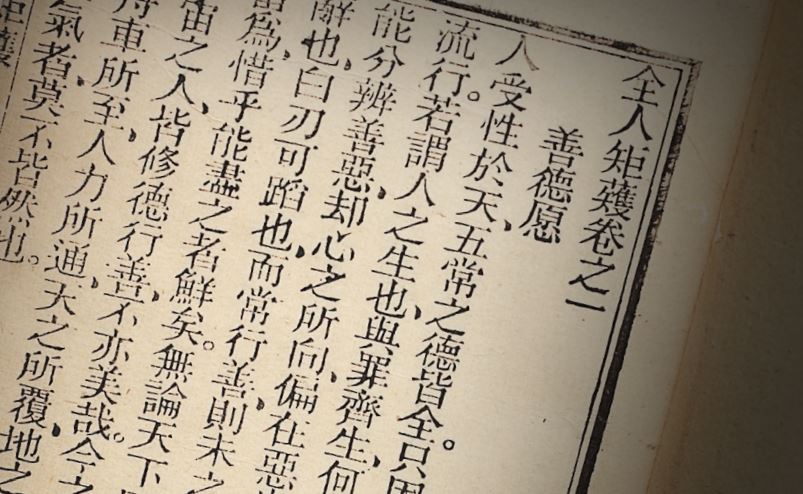 全人矩蒦卷之一
善德愿
人受性於天、五常之德皆全。只因
流行。若謂人之生也、與罪齊生、何
能分辨善惡、却心之所向、偏在惡
辭也、白刃可蹈也、而常行善、則未之
為、惜乎能盡之者鮮矣。無論天下
宙之人、皆修德行善、不亦美哉。今之
舟車所至、人力所通、天之所覆、地之
氣者、莫不皆然也。
矩蒦